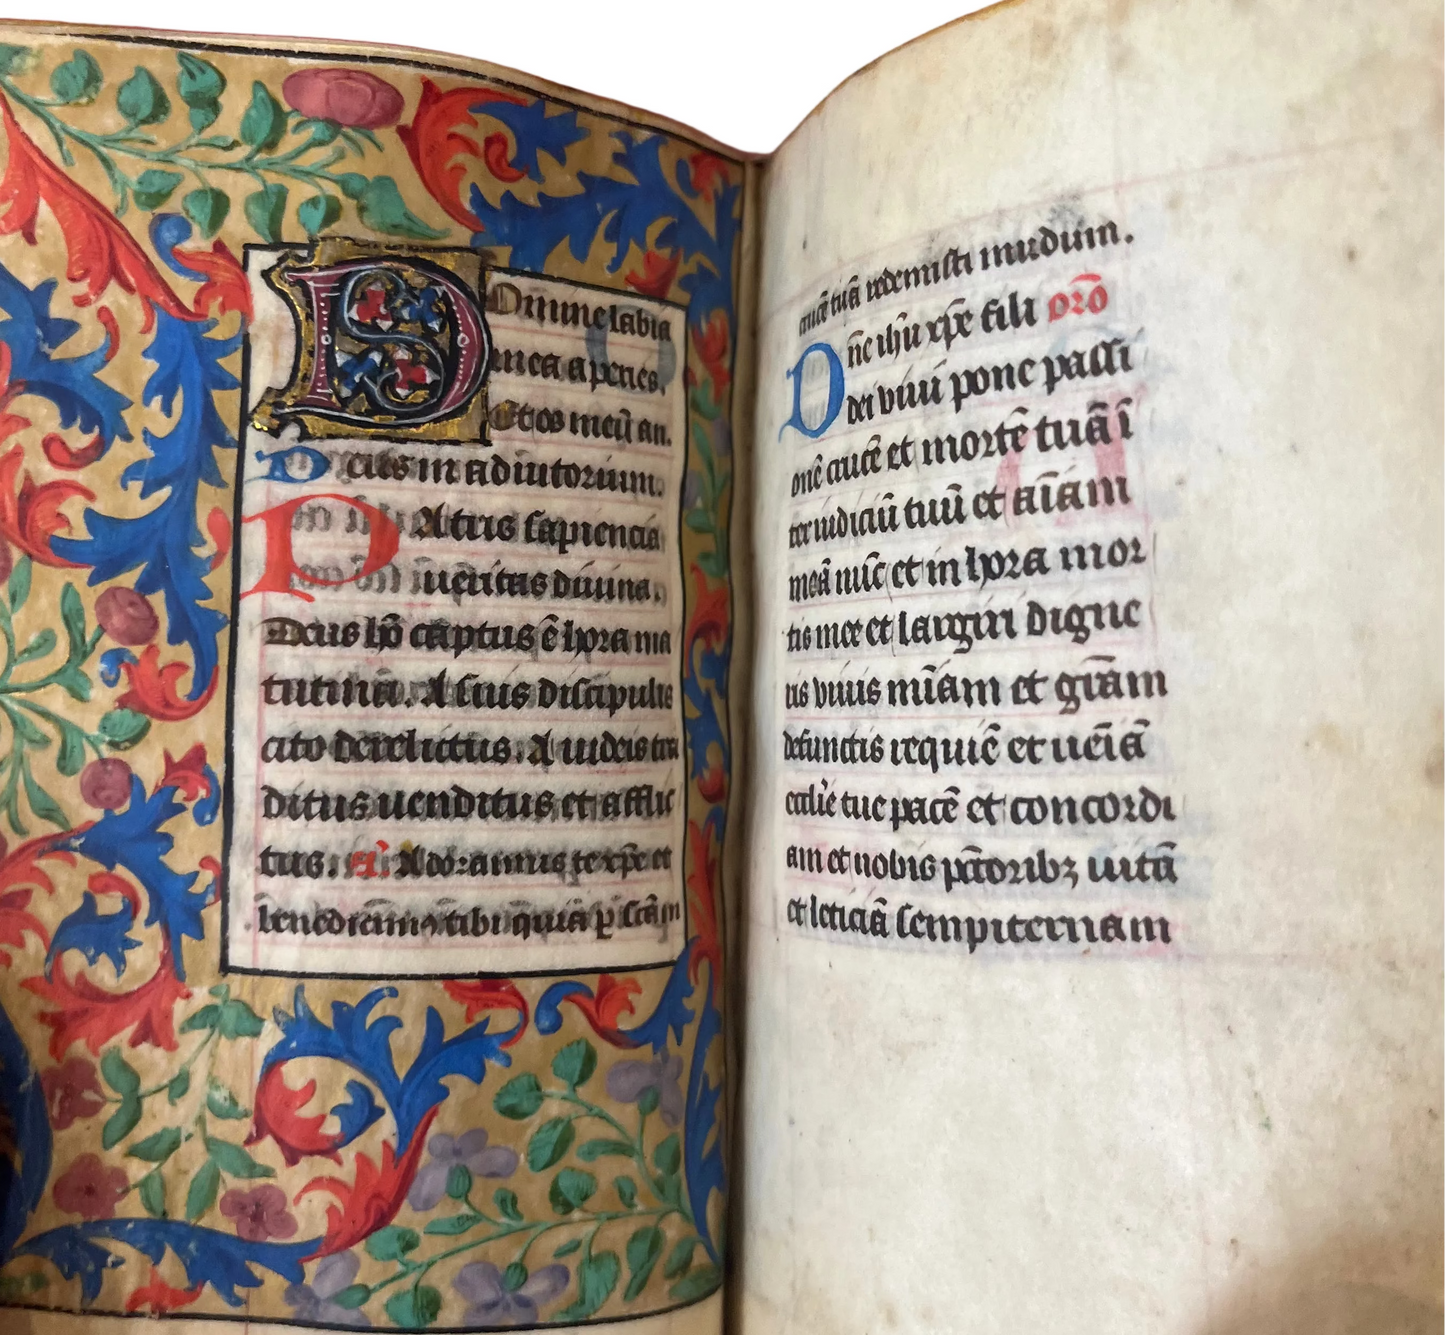 Domine labia
mea aperies.
Et os meū an.
Deus in adiutorium.
PAtris sapiencia
ueritas diuina.
Deus hō captus ē hora ma
tutina. A suis discipulis
cito derelictus. A iudeis tra
ditus uenditus et afflic
tus. añ. Adoramus te xp̄e et
benedicim9 tibi quia p̱ sc̄am
crucē tuā redemisti mūdum.
Dn̄e ihū xp̄e fili orō
dei viui pone passi
onē crucē et mortē tuā ī
ter iudiciū tuū et aīam
meā nūc et in hora mor
tis mee et largiri digne
ris viuis mīam et grām
defunctis requiē et ueīā
ecclīe tue pacē et concordi
am et nobis pc̄toribꝫ uitā
et leticiā sempiternam